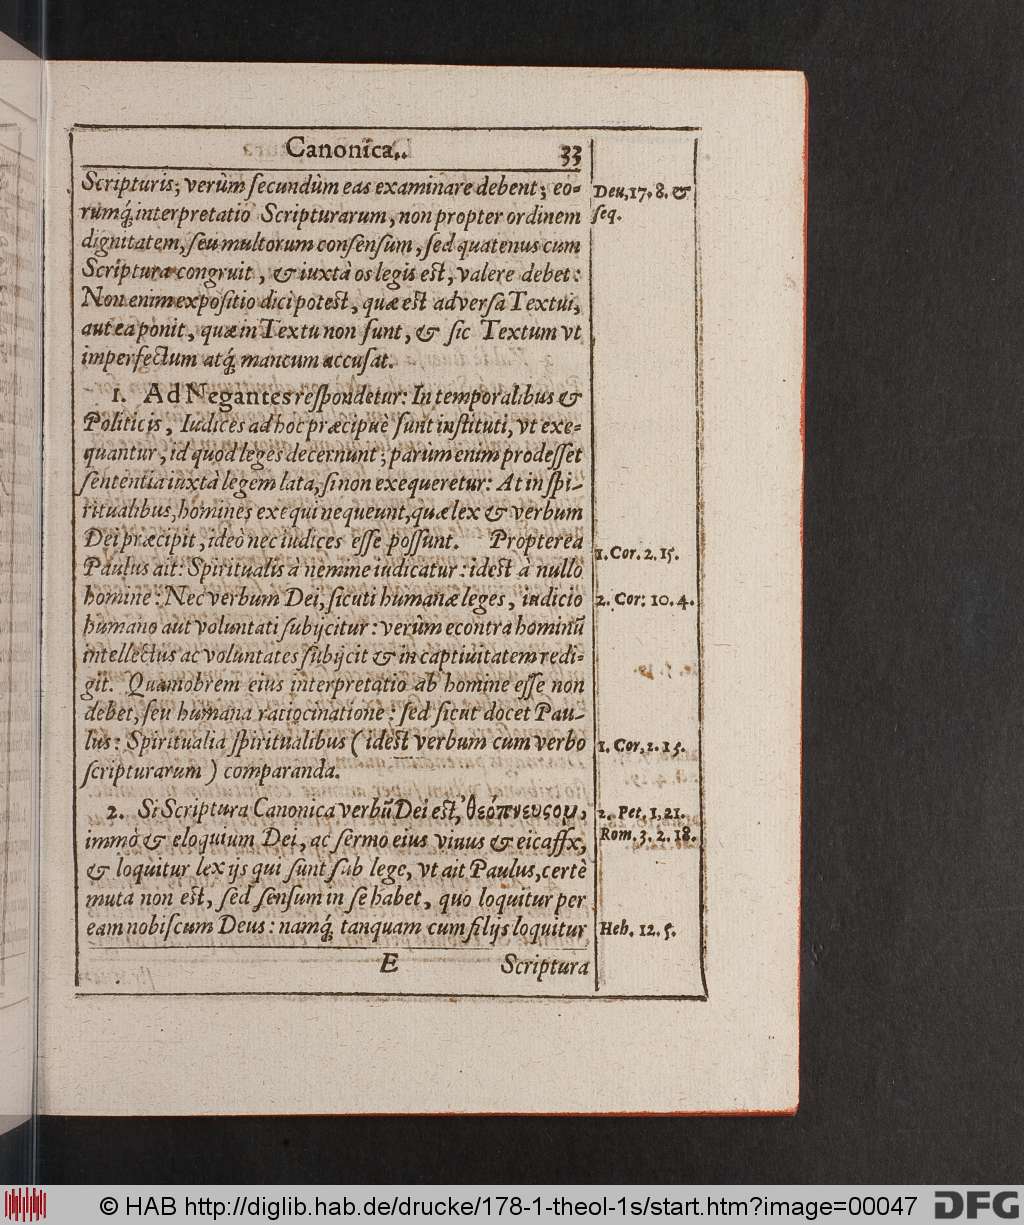 Canonica.. 33
Scripturis; verùm secundùm eas examinare debent; eo-
rumq́; interpretatio Scripturarum, non propter ordinem
dignitatem, seu multorum consensum, sed quatenus cum
Scriptura congruit, & iuxtà os legis est, valere debet:
Non enim expositio dici potest, quæ est adversa Textui,
aut ea ponit, quæ in Textu non sunt, & sic Textum vt
imperfectum atq́; mancum accusat.
1. Ad Negantes respondetur: In temporalibus &
Politicis, Iudices ad hoc præcipuè sunt instituti, vt exe-
quantur, id quod leges decernunt; parùm enim prodesset
sententia iuxtà legem lata, si non exequeretur: At in spi-
ritualibus, homines exequi nequeunt, quæ lex & verbum
Dei præcipit, ideò nec iudices esse possunt. Propterea
Paulus ait: Spiritualis à nemine iudicatur: idest à nullo
homine: Nec verbum Dei, sicuti humanæ leges, iudicio
humano aut voluntati subijcitur: verùm econtra hominū
intellectus ac voluntates subijcit & in captiuitatem redi-
git. Quamobrem eius interpretatio ab homine esse non
debet, seu humana ratiocinatione: sed sicut docet Pau-
lus: Spiritualia spiritualibus (idest verbum cum verbo
scripturarum) comparanda.
2. Si Scriptura Canonica verbū Dei est, θεόπνευσομ,
immò & eloquium Dei, ac sermo eius viuus & eicassx,
& loquitur lex ijs qui sunt sub lege, vt ait Paulus, certè
muta non est, sed sensum in se habet, quo loquitur per
eam nobiscum Deus: namq́; tanquam cum filijs loquitur
E Scriptura
Deu, 17. 8. &
seq.
1. Cor. 2. 15.
2. Cor: 10. 4.
1. Cor, 2. 15.
2. Pet. 1, 21.
Rom. 3. 2. 18.
Heb. 12. 5.
© HAB http://diglib.hab.de/drucke/178-1-theol-1s/start.htm?image=00047
DFG